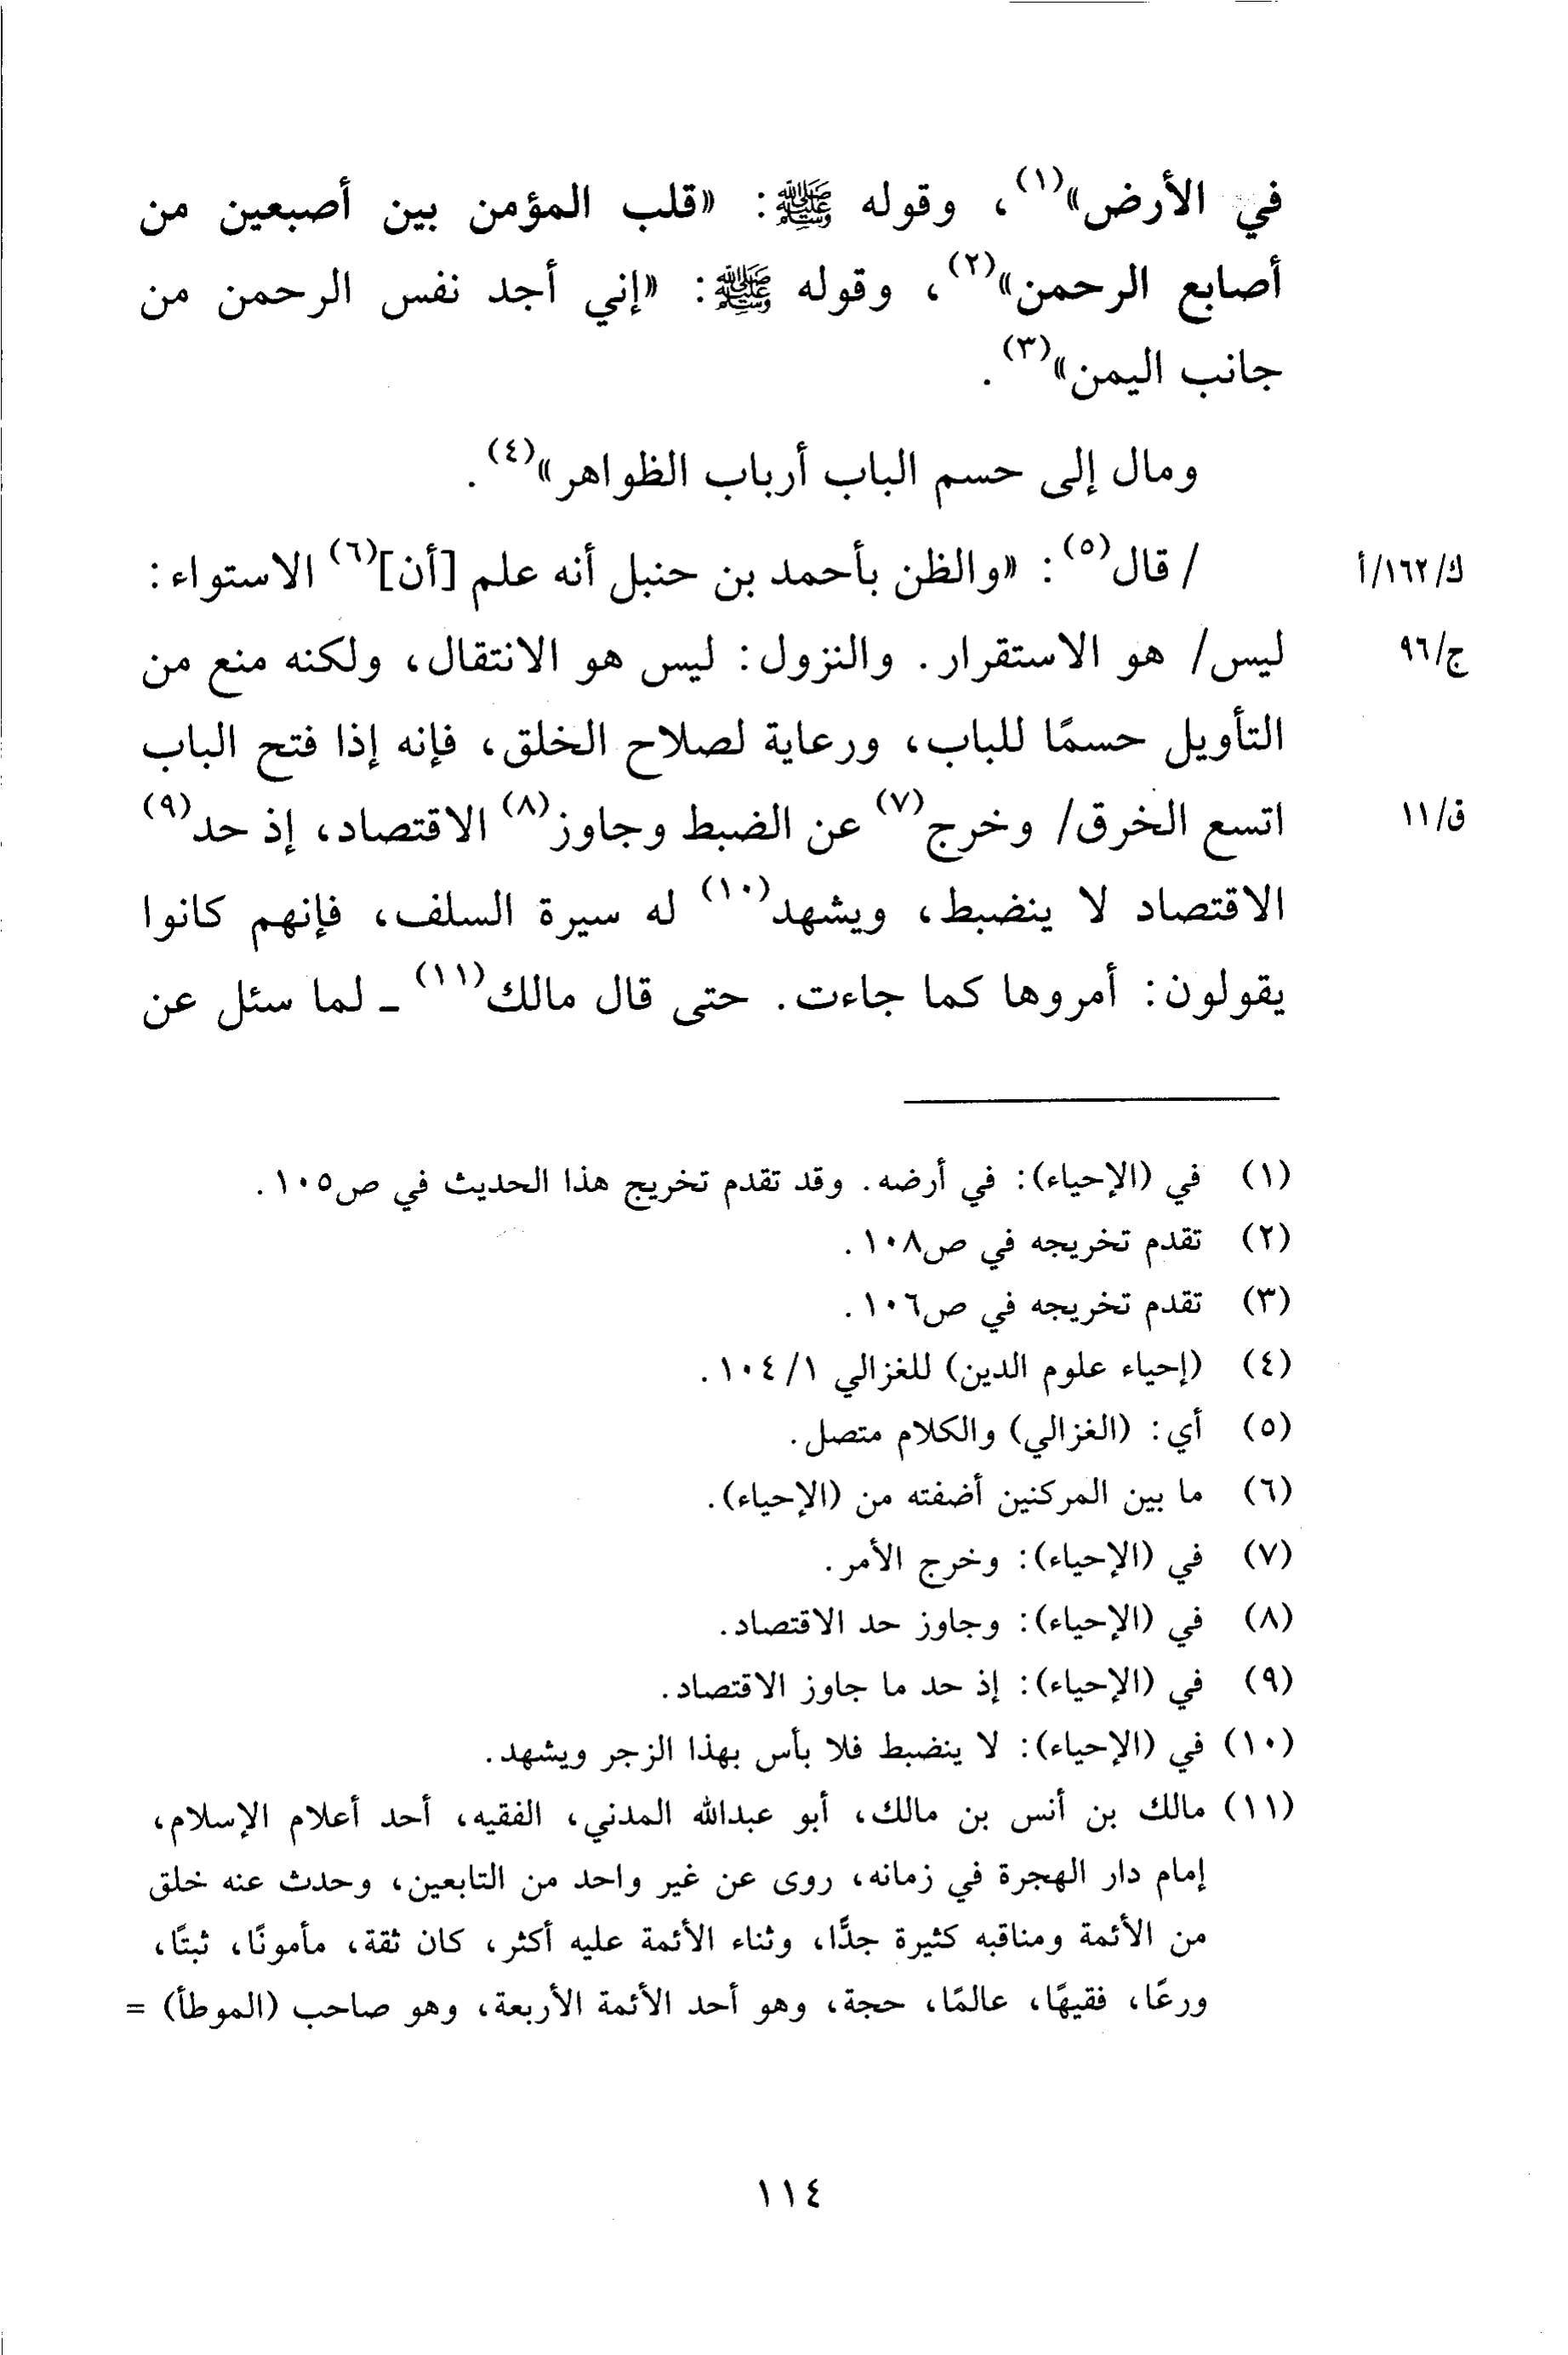 في الأرض»(١)، وقوله ﷺ: «قلب المؤمن بين أصبعين من
أصابع الرحمن»(٢)، وقوله ﷺ: «إني أجد نفس الرحمن من
جانب اليمن»(٣).
ومال إلى حسم الباب أرباب الظواهر»(٤).
ك/١٦٢/أ / قال(٥): «والظن بأحمد بن حنبل أنه علم [أن](٦) الاستواء:
ج/٩٦ ليس/ هو الاستقرار. والنزول: ليس هو الانتقال، ولكنه منع من
التأويل حسمًا للباب، ورعاية لصلاح الخلق، فإنه إذا فتح الباب
ق/١١ اتسع الخرق/ وخرج(٧) عن الضبط وجاوز(٨) الاقتصاد، إذ حد(٩)
الاقتصاد لا ينضبط، ويشهد(١٠) له سيرة السلف، فإنهم كانوا
يقولون: أمروها كما جاءت. حتى قال مالك(١١) ـ لما سئل عن
(١) في (الإحياء): في أرضه. وقد تقدم تخريج هذا الحديث في ص١٠٥.
(٢) تقدم تخريجه في ص١٠٨.
(٣) تقدم تخريجه في ص١٠٦.
(٤) (إحياء علوم الدين) للغزالي ١/ ١٠٤.
(٥) أي: (الغزالي) والكلام متصل.
(٦) ما بين المركنين أضفته من (الإحياء).
(٧) في (الإحياء): وخرج الأمر.
(٨) في (الإحياء): وجاوز حد الاقتصاد.
(٩) في (الإحياء): إذ حد ما جاوز الاقتصاد.
(١٠) في (الإحياء): لا ينضبط فلا بأس بهذا الزجر ويشهد.
(١١) مالك بن أنس بن مالك، أبو عبدالله المدني، الفقيه، أحد أعلام الإسلام،
إمام دار الهجرة في زمانه، روى عن غير واحد من التابعين، وحدث عنه خلق
من الأئمة ومناقبه كثيرة جدًّا، وثناء الأئمة عليه أكثر، كان ثقة، مأمونًا، ثبتًا،
ورعًا، فقيهًا، عالمًا، حجة، وهو أحد الأئمة الأربعة، وهو صاحب (الموطأ) =
١١٤